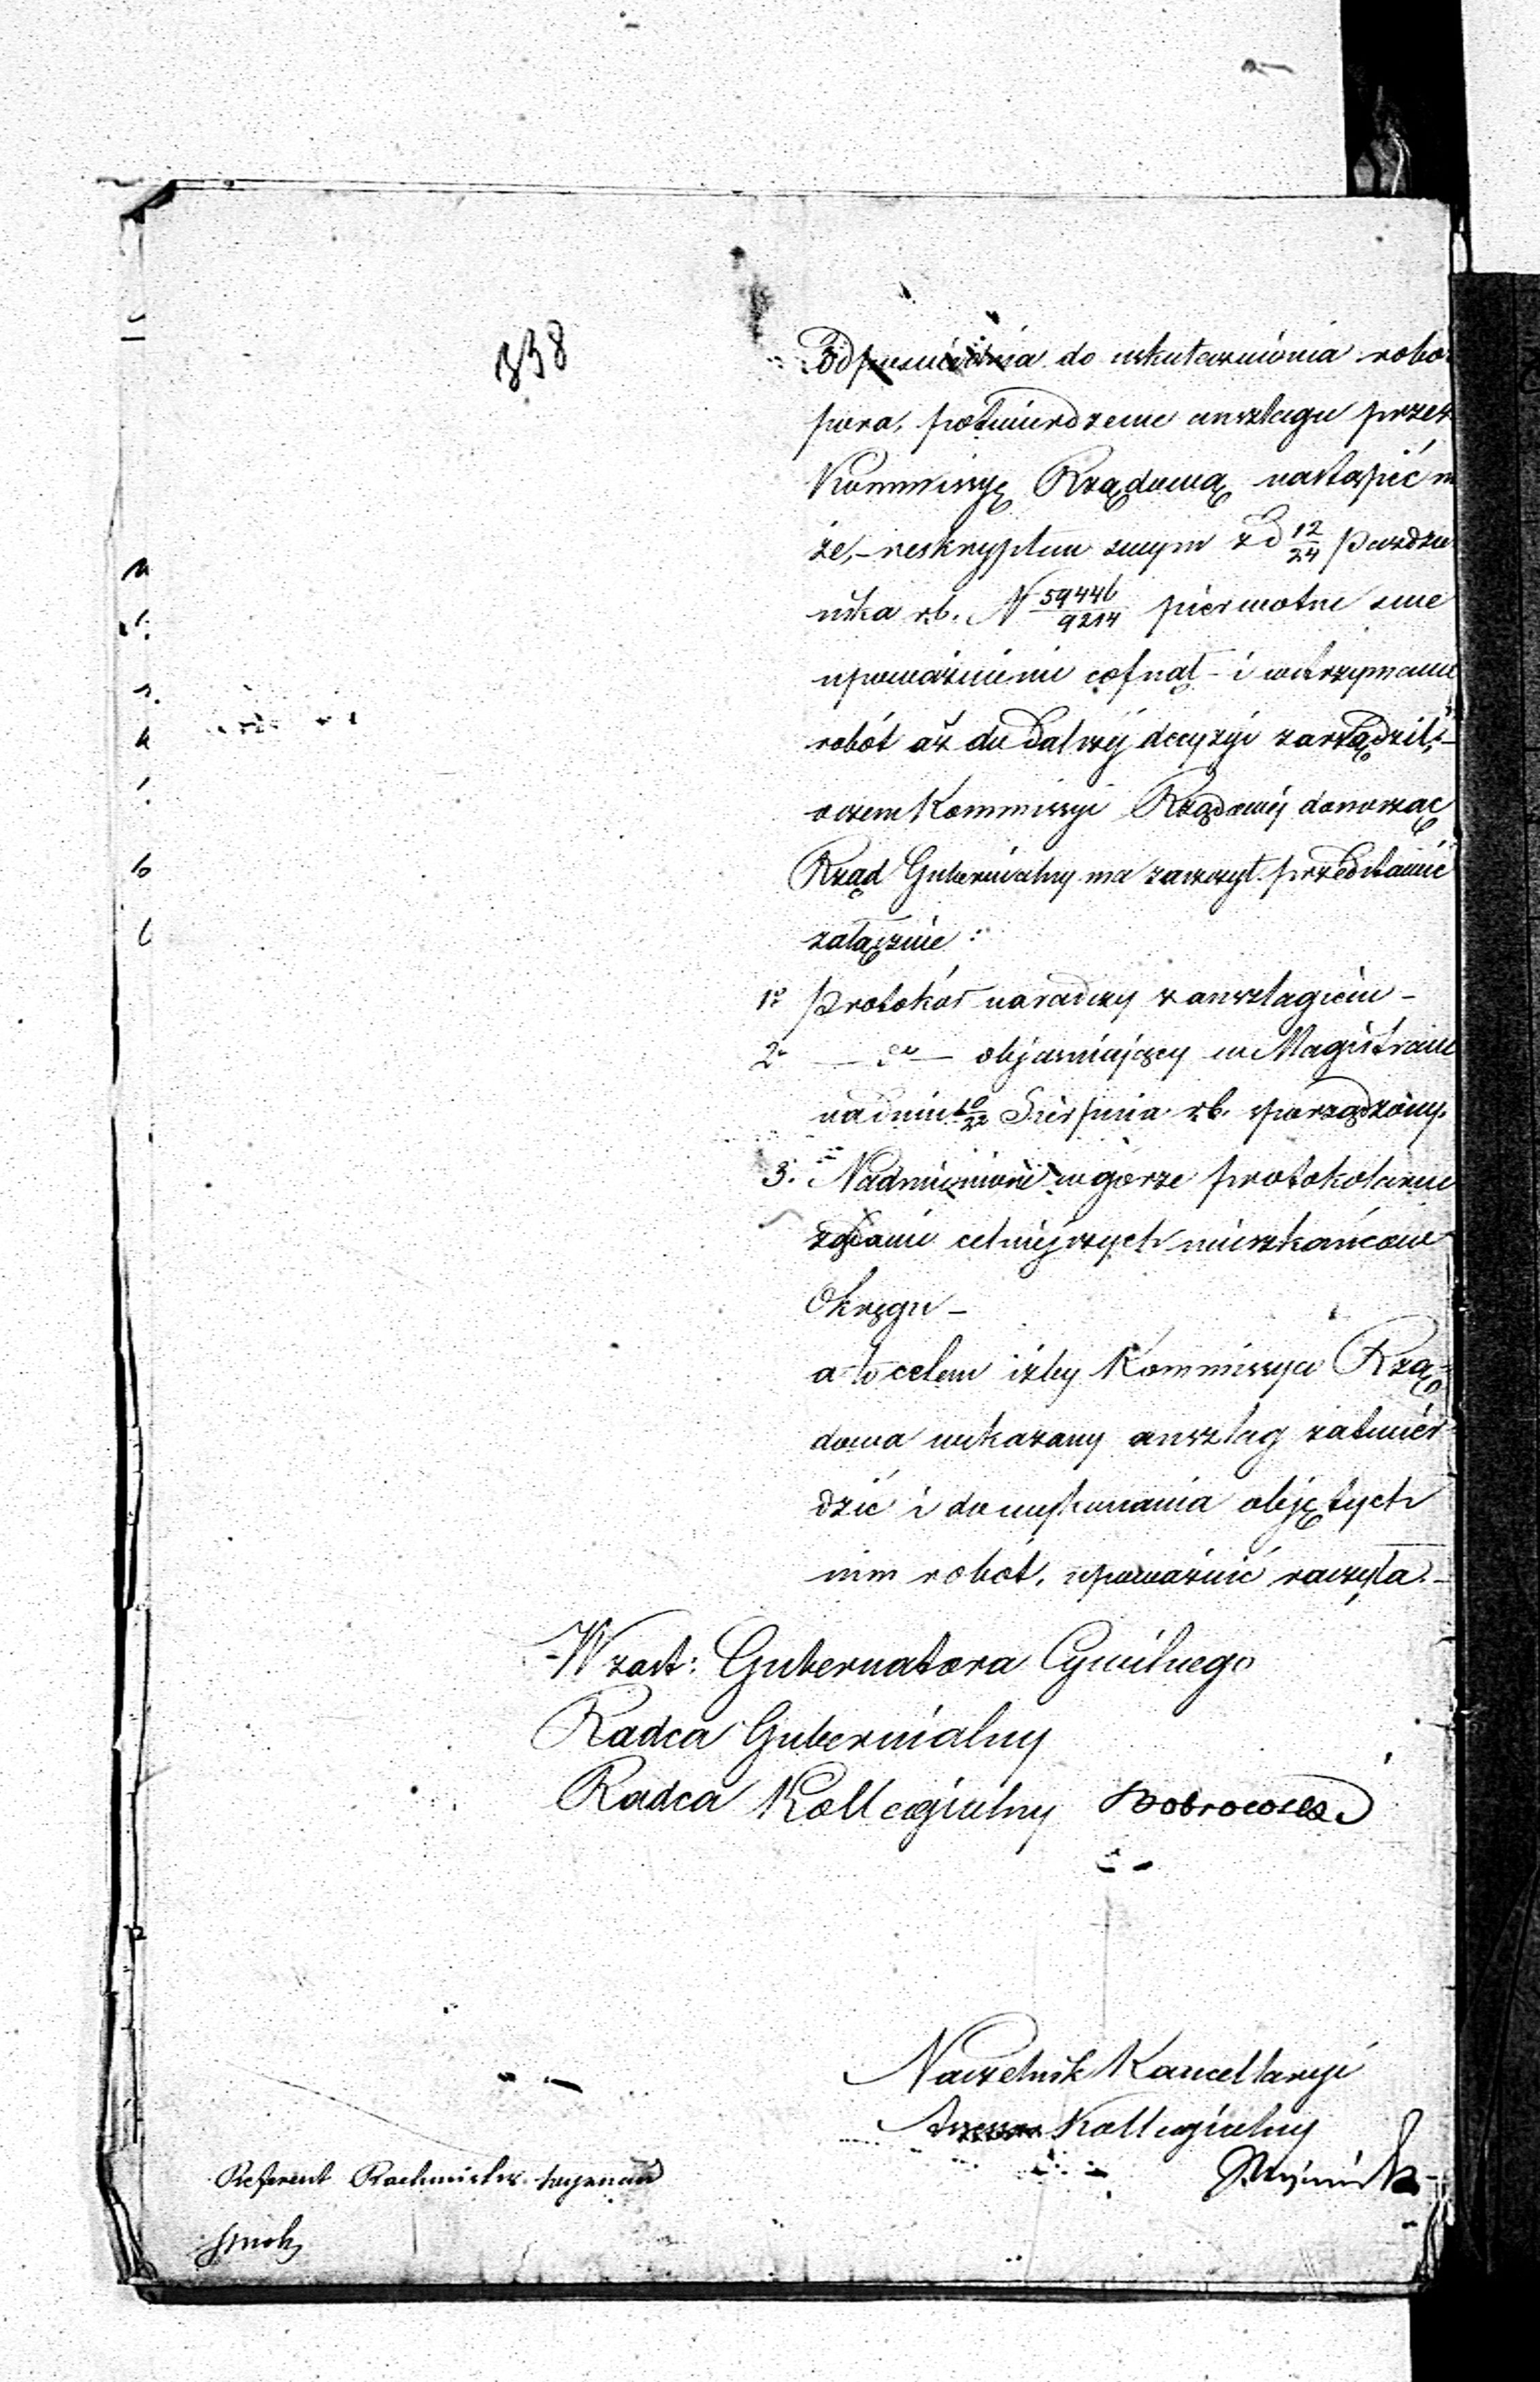 338
do uskutecznienia robo
pora, potwierdzenie anszlagu przez
Kommissyę Rządową nastąpić m
że, – reskryptem swym z d 12/24 Paździer
nika r.b. N 59446/9214 pierwotne swe
upoważnienie cofnął – i wstrzymanie
robót aż do dalszéj decyzyi zarządził, –
o czem Kommissyi Rządowéj donosząc
Rząd Gubernialny ma zaszczyt przedstawić
załącznie :
1o Protokół naradczy z anszlagiem –
2o — do — objaśniający w Magistracie
na dniu 10/22 Sierpnia r.b. sporządzony.
3. Nadmienione w górze protokolarne
żądanie celniejszych mieszkańców
Okręgu –
a to celem iżby Kommissya Rzą=
dowa wskazany anszlag zatwier
dzić i do wykonania objętych
nim robót, upoważnić raczyła. –
W zast: Gubernatora Cywilnego
Radca Gubernialny
Radca Kollegialny
Naczelnik Kancellaryi
Assessor Kollegialny
Referent